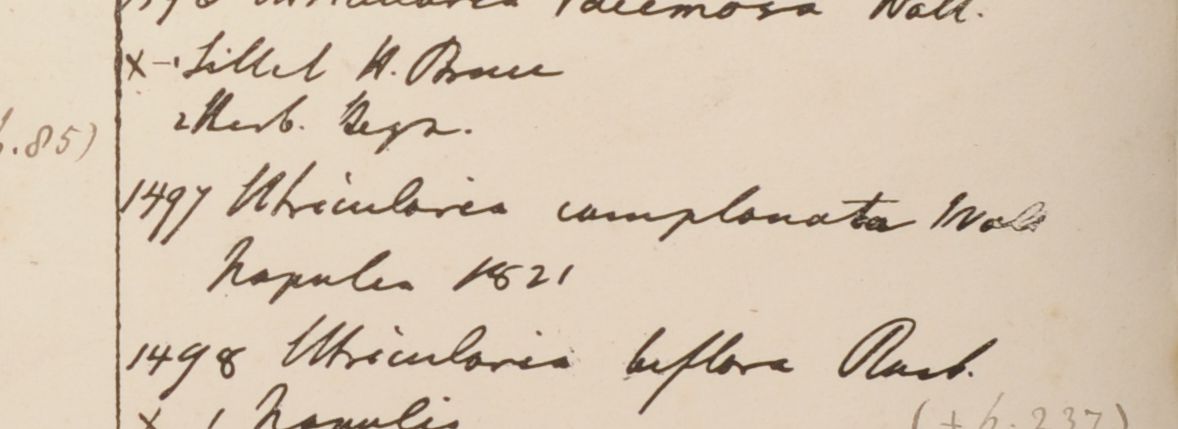 1496 Utricularia racemosa Wall.
X - 1 Sillet H. Bruce
2 Herb. Heyn.
.85)
1497 Utricularia complanata Wall
Napalia 1821
1498 Utricularia biflora Roxb.
X 1 Napalia
(+ p. 237)